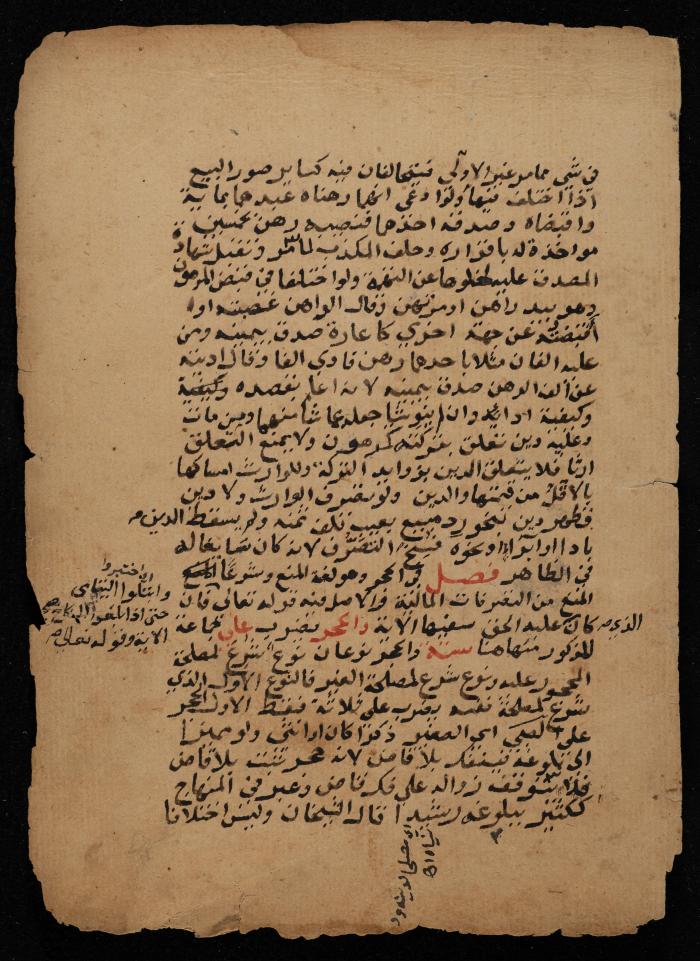 في شي مما مر غير الاولى فيتحالفان فيه كساير صور البيع
اذا اختلف فيها ولو ادعى انهما رهناه عبدهما بماية
واقبضاه وصدقه احدهما فنصيبه رهن بخمسين
مواخذة له باقراره وحلف المكذب لما مر وتقبل شهادة
المصدق عليه لخلوها عن التهمة ولو اختلفا في قبض المرهون
وهو بيد راهن او مرتهن وقال الراهن غصبته او
اقبضته عن جهة اخرى كاعارة صدق بيمينه ومن
عليه الفان مثلا باحدهما رهن فادى الفا وقال اديته
عن الف الرهن صدق بيمينه لانه اعلم بقصده وكيفية
وكيفية ادايه وان لم ينو شيا جعله عما شا منهما ومن مات
وعليه دين تعلق بتركته كمرهون ولا يمنع التعلق
ارثا فلا يتعلق الدين بزوايد التركة وللوارث امساكها
بالاقل من قيمتها والدين ولو تصرف الوارث ولا دين
فظهر دين بنحو رد مبيع بعيب تلف ثمنه ولم يسقط الدين
باداا وابراا ونحوه فسخ التصرف لانه كان سايغا له
في الظاهر فصل في الحجر وهو لغة المنع وشرعا
المنع من التصرفات المالية والاصل فيه قوله تعالى فان
كان عليه الحق سفيها الاية والحجر يضرب على جماعة
المذكور منها هنا ستة والحجر نوعان نوع شرع لمصلحة
المحجور عليه ونوع شرع لمصلحة الغير فالنوع الاول الذي
شرع لمصلحة نفسه يضرب على ثلاثة فقط الاول الحجر
على الصبي اي الصغير ذكرا كان او انثى ولو مميزا
الى بلوغه فينفك بلا قاض لانه حجر ثبت بلا قاض
فلا يتوقف زواله على فك قاض وعبر في المنهاج
ككثير ببلوغه رشيدا قال الشيخان وليس اختلافا
وابتلوا اليتامى
حتى اذا بلغوا النكاح
الاية وقوله تعالى